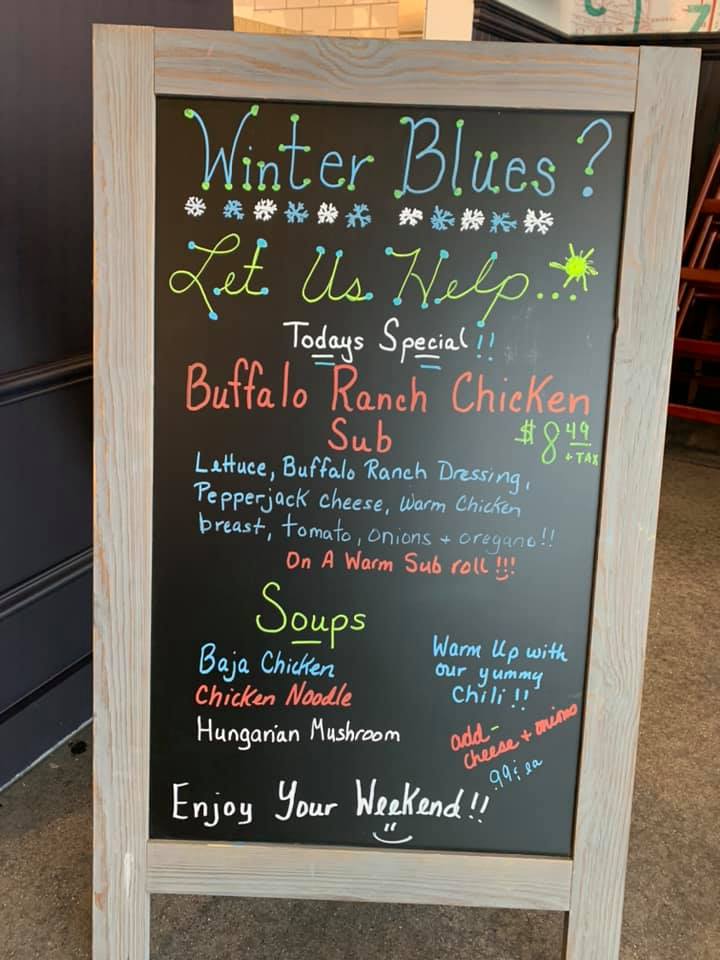 Winter Blues?
Let Us Help...
Todays Special!!
Buffalo Ranch Chicken
Sub
$8.49
+ TAX
Lettuce, Buffalo Ranch Dressing,
Pepperjack cheese, Warm Chicken
breast, tomato, onions + oregano!!
On A Warm Sub roll!!!
Soups
Baja Chicken
Chicken Noodle
Hungarian Mushroom
Warm Up with
our yummy
Chili!!
add-
cheese + onions
.99¢ ea
Enjoy Your Weekend!!